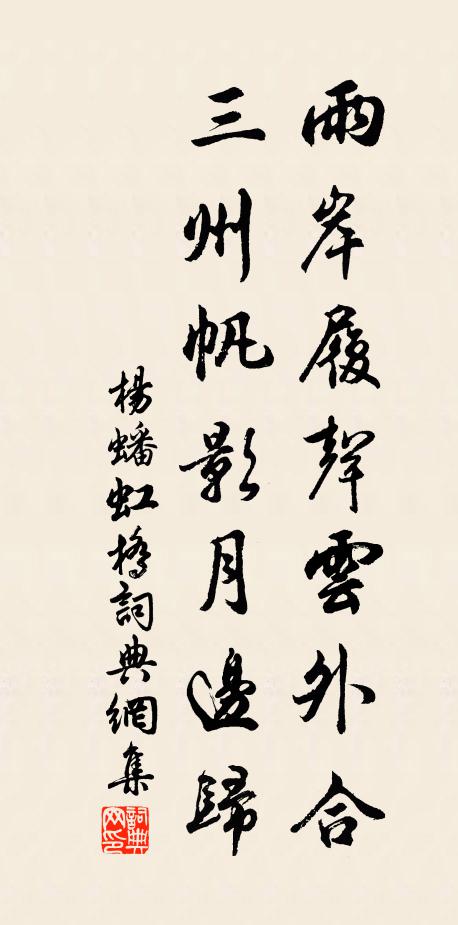 兩岸履聲雲外合
三州帆影月邊歸
楊蟠虹橋詞典網集
詞典网印